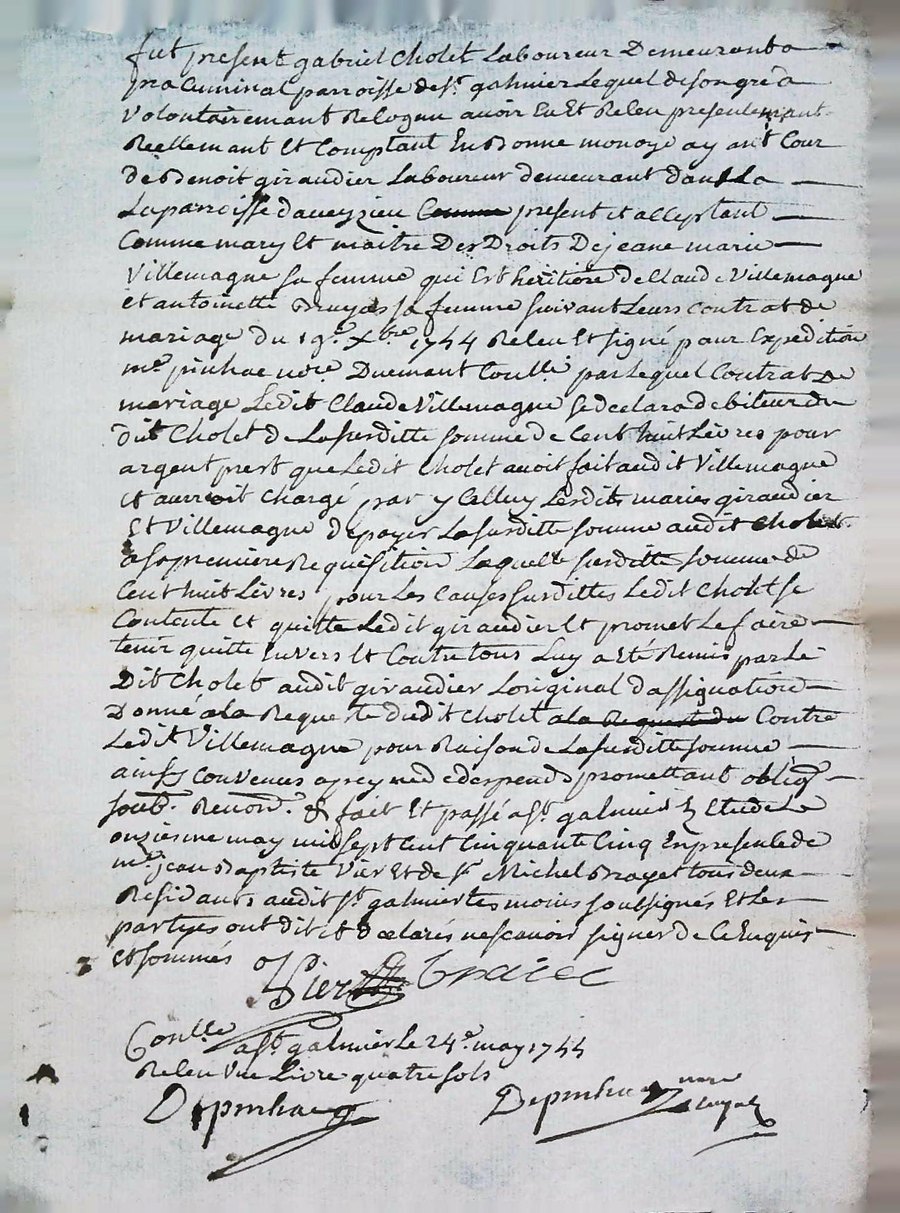 fut present gabriel Cholet Laboureur Demeurant a
pra Cuminal parroisse de st. galmier Lequel de son gré a
Volontairemant Recognu avoir Eu Et Receu presentemant
Reellemant Et Comptant En Bonne monoye ayant Cour
de Benoit giraudier Laboureur demeurant dans La
La parroisse daveyzieu Comme present et acceptant
Comme mary Et maitre Des Droits De jeane marie
Villemagne sa femme qui Est heritiere de Claude Villemagne
et antoinette Bruyas sa femme suivant Leurs Contrat de
mariage du 19e. Xbre 1744 Receu Et signé pour Expedition
me pinhac nore Duemant Coullé par Lequel Contrat De
mariage Ledit Claude Villemagne se declara debiteur du
dit Cholet de La surditte somme de Cent huit Livres pour
argent prest que Ledit Cholet avoit fait audit Villemagne
et aurroit Chargé par y Celluy Lesdits maries giraudier
Et Villemagne de payer La surditte somme audit Cholet
a sa premiere Requisition Laquelle surditte somme de
Cent huit Livres pour Les Causes surdittes Ledit Cholet se
Contente et quitte Ledit giraudier Et promet Le faire
tenir quitte Envers Et Contre tous Luy a Eté Remis par Le
Dit Cholet audit giraudier Loriginal dassignation
Donné a la Requeste dudit Cholet a la Requeste du Contre
Ledit Villemagne pour Raison de La surditte somme
ainsy Convenus promettant oblige.
soub. Renon. & fait Et passé a st. galmier Etude Le
onziesme may mil sept Cent Cinquante Cinq En presele de
me. jean Baptiste Vier Et de sr Michel Brayet tous deux
Residants audit st. galmier tesmoins soussignés Et Les
partyes ont dit et declarés ne scavoir signer de Ce Enquis
et sommés
Vier Braiet
Conlle a st. galmier Le 24e. may 1755
Receu une Livre quatre sols
Depinhac
Depinhac nore Royal